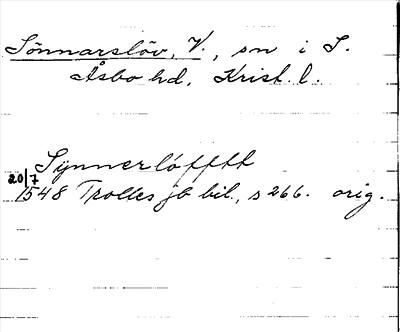 Sönnarslöv, V., sn i S.
Åsbo hd, Krist. l.
Synnerlöfftt
20/7
1548 Trolles jb bil., s 266. orig.